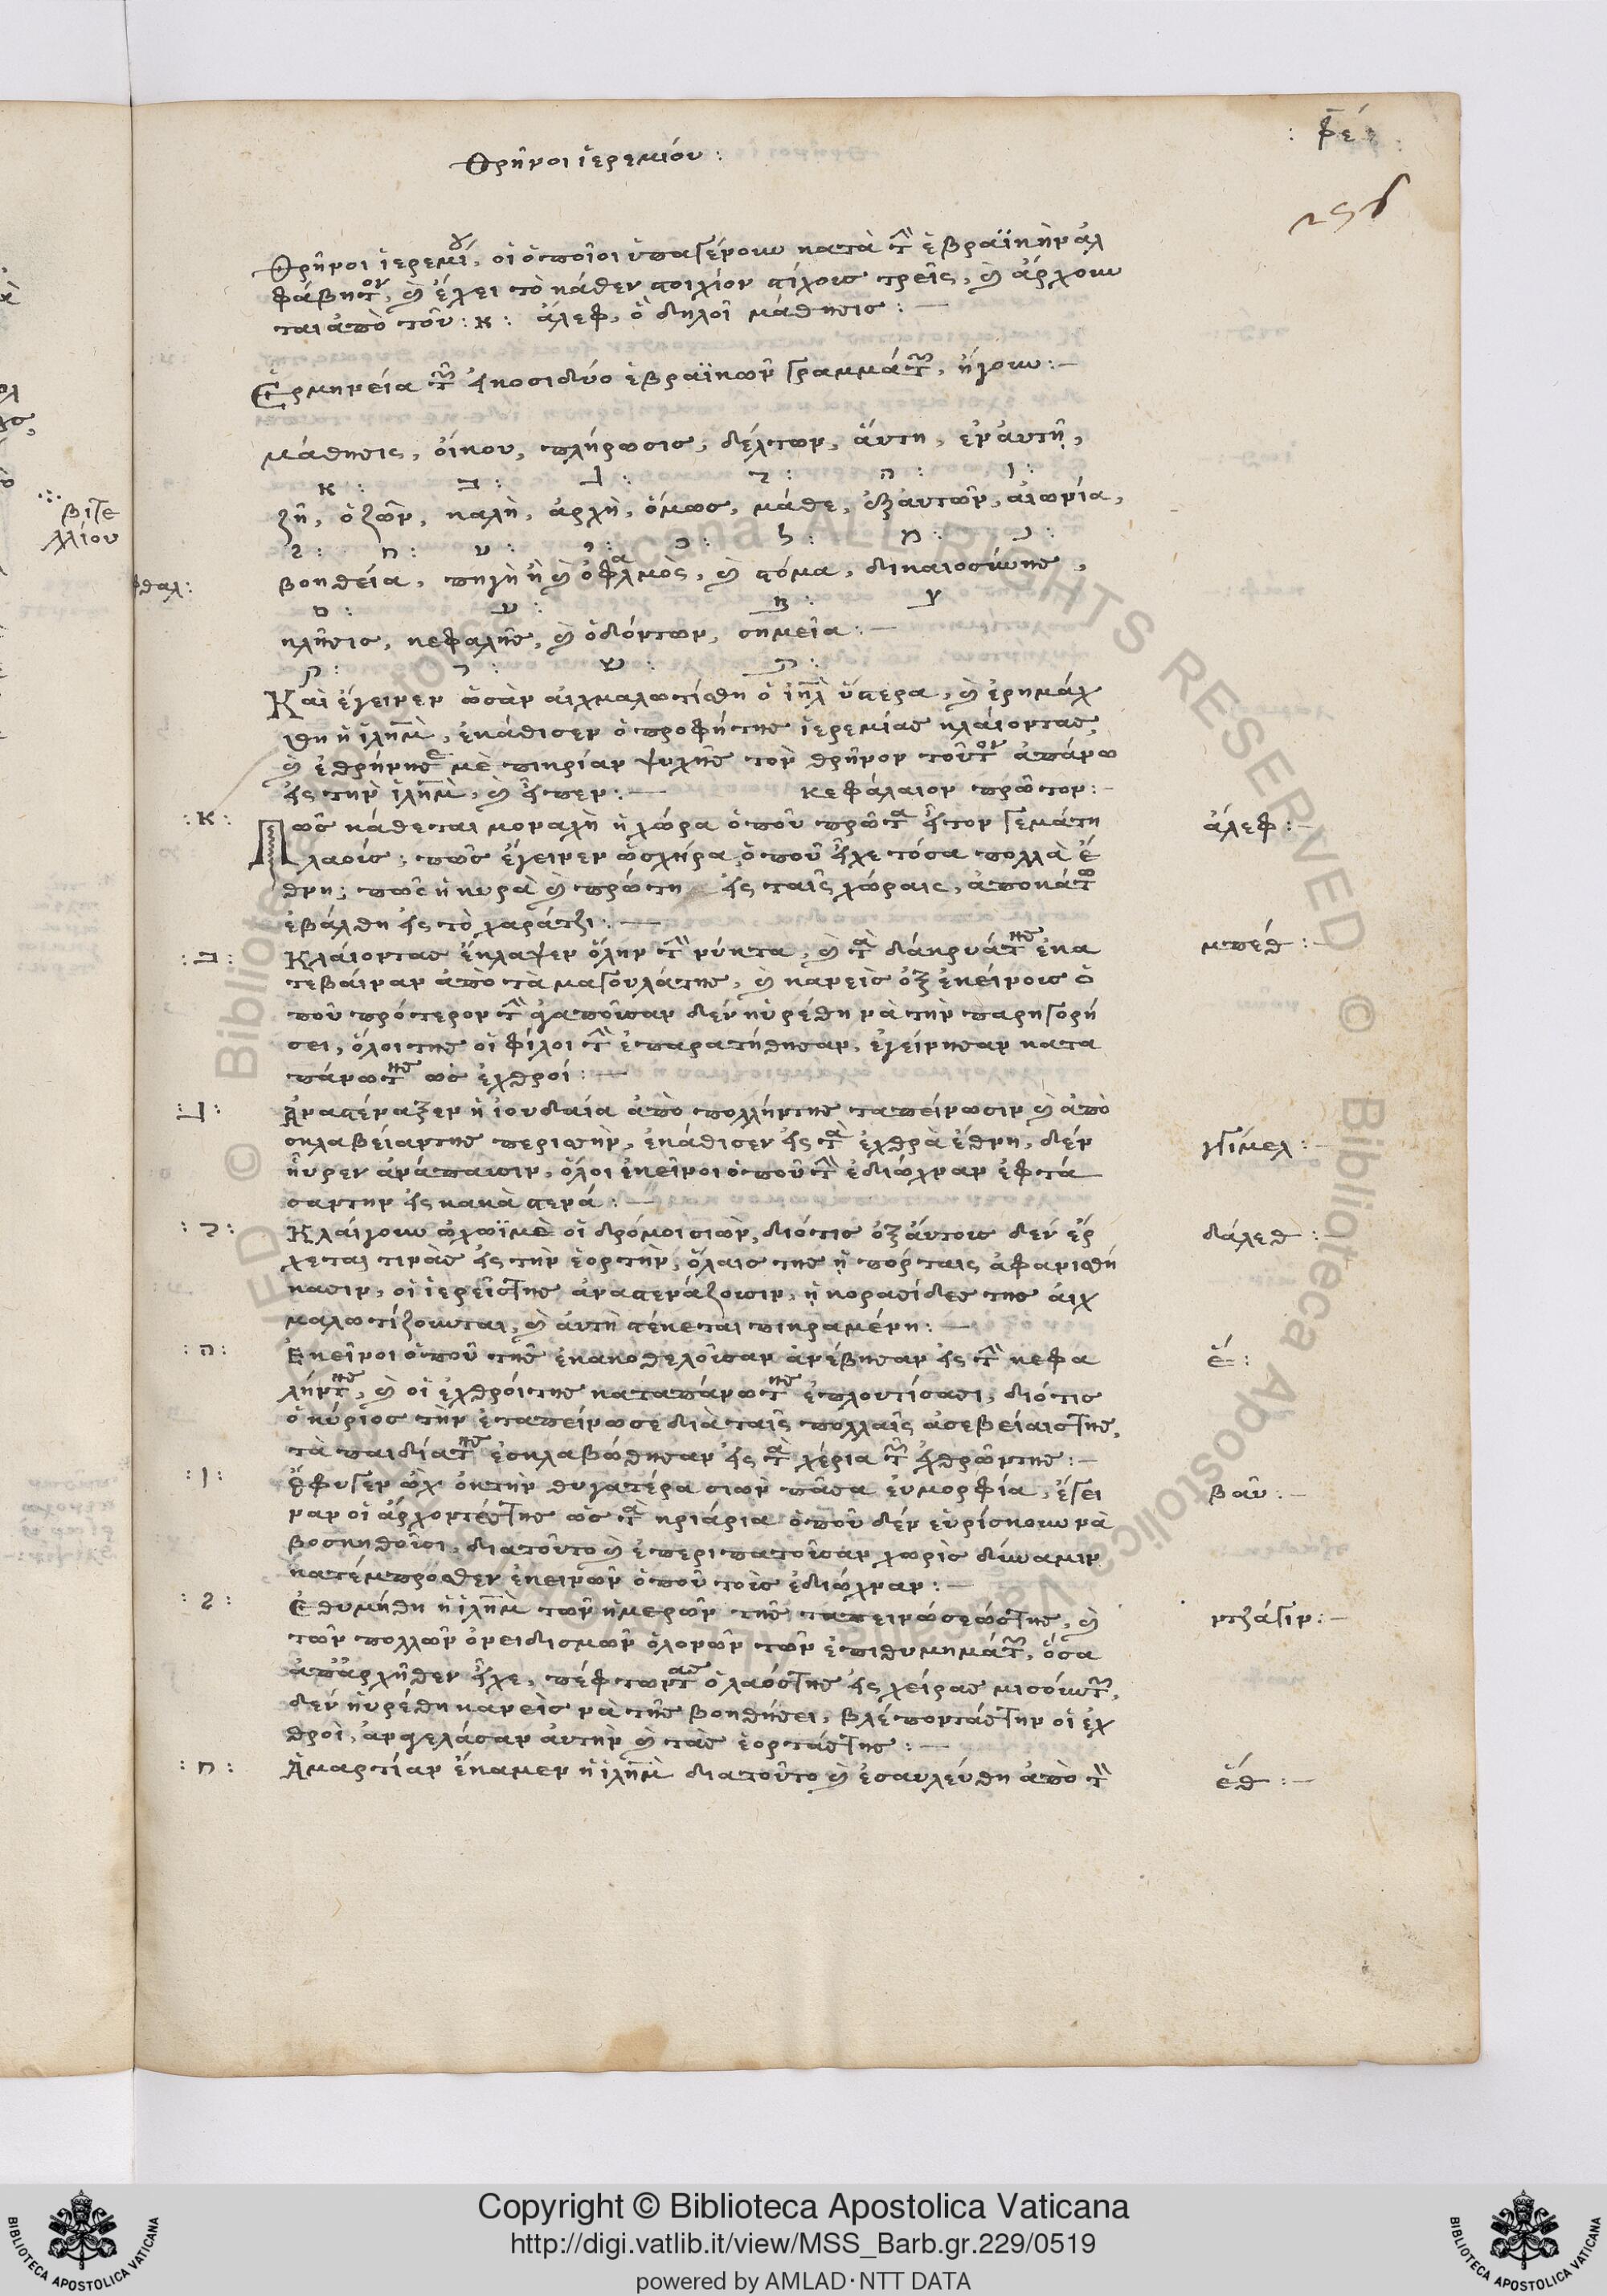 : φέ :
Θρῆνοι ἱερεμίου :
256
Θρῆνοι ἱερεμίου, οἱ ὁποῖοι ὑπαγένουν κατὰ τὴν ἑβραϊκὴν ἀλ
φάβητον, καὶ ἔχει τὸ κάθεν στοιχίον στίχους τρεῖς, καὶ ἄρχουν
ται ἀπὸ τοῦ : א : ἄλεφ, ὃ δηλοῖ μάθησις : —
Ἑρμηνεία τῶν εἰκοσιδύο ἑβραϊκῶν γραμμάτων, ἤγουν : —
μάθησις, οἴκου, πλήρωσις, δέλτων, ἄυτη, ἐν ἀυτῇ,
א : ב : ג : ד : ה : ו :
ζῆ, ὁ ζῶν, καλὴ, ἀρχὴ, ὅμως, μάθε, ἐξ ἀυτῶν, αἰωνία,
ז : ח : ט : י : כ : ל : מ : נ :
βιτζε
λλίου
βοηθεία, πηγὴ ἢ καὶ ὀφθαλμὸς, καὶ στόμα, δικαιοσύνης,
φθαλ :
ס : ע : פ : צ
κλῆσις, κεφαλῆς, καὶ ὀδόντων, σημεῖα : —
ק : ר : ש : ת :
Καὶ ἔγεινεν ὡσὰν αἰχμαλωτίσθη ὁ ἰηλ ὕστερα, καὶ ἐρημάχ
θη ἡ ἱλημ, ἐκάθισεν ὁ προφήτης ἱερεμίας κλάιοντας,
καὶ ἐθρήνησε μὲ πικρίαν ψυχῆς τὸν θρῆνον τοῦτον ἀπάνω
εἰς τὴν ἱλημ, καὶ εἶπεν : — Κεφάλαιον πρῶτον : —
: א : Πῶς κάθεται μοναχὴ ἡ χώρα ὁποῦ πρῶτα ἦτον γεμάτη ἄλεφ : —
λαοὺς; πῶς ἔγεινεν ὡς χήρα, ὁποῦ εἶχε τόσα πολλὰ ἔ
θνη; πῶς ἡ κυρὰ καὶ πρώτη εἰς ταῖς χώραις, ἀποκάτω
ἐβάλθη εἰς τὸ χαράτζι : —
: ב : Κλάιοντας ἔκλαψεν ὅλην τὴν νύκτα, καὶ τὰ δάκρυάτης ἐκα μπέθ : —
τεβάιναν ἀπὸ τὰ μαγουλάτης, καὶ κανεὶς ὀξ ἐκείνους ὁ
ποῦ πρότερον τὴν ἀγαποῦσαν δὲν ηὑρέθη νὰ τὴν παρηγορή
σει, ὅλοι της οἱ φίλοι τὴν ἐπαρατήθησαν, ἐγείνησαν κατα
πάνωτης ὡς ἐχθροί : —
: ג : Ἀναστέναξεν ἡ ἰουδαία ἀπὸ πολλήντης ταπείνωσιν καὶ ἀπὸ
σκλαβείαντης περισσὴν, ἐκάθισεν εἰς τὰ ἐχθρὰ ἔθνη, δὲν γγίμελ : —
ηὗρεν ἀνάπαυσιν, ὅλοι ἐκεῖνοι ὁποῦ τὴν ἐδιώχναν ἐφτά
σαντην εἰς κακὰ στενά : —
: ד : Κλάιγουν ὠχωϊμὲ οἱ δρόμοι σιὼν, διότις ὀξ ἄυτους δὲν ἔρ δάλεθ :
χεται τινὰς εἰς τὴν ἑορτὴν, ὅλαις της ᾑ πόρταις ἀφανισθή
κασιν, οἱ ἱερεῖςτης ἀναστενάζουσιν, ᾑ κορασίδες της ἀιχ
μαλωτίζουνται, καὶ ἀυτὴ στέκεται πικραμένη : —
: ה : Ἐκεῖνοι ὁποῦ τῆς ἐκακοθελοῦσαν ἀνέβησαν εἰς τὴν κεφα ἔ :
λήντης, καὶ οἱ ἐχθρόιτης καταπάνωτης ἐπλουτίσασι, διότις
ὁ κύριος τὴν ἐταπείνωσε διὰ ταῖς πολλαῖς ἀσεβείαιςτης,
τὰ παιδίατης ἐσκλαβώθησαν εἰς τὰ χέρια τῶν ἐχθρῶντης : —
: ו : Ἔφυγεν ὦχ ὀκ τὴν θυγατέρα σιὼν πᾶσα ἐυμορφία, ἔγει βάυ : —
ναν οἱ ἄρχοντέςτης ὡς τὰ κριάρια ὁποῦ δὲν εὑρίσκουν νὰ
βοσκηθοῦσι, διατοῦτο καὶ ἐπεριπατοῦσαν χωρὶς δύναμιν
κατέμπροσθεν ἐκεινῶν ὁποῦ τοὺς ἐδιώχναν : —
: ז : Ἐθυμήθη ἡ ἱλημ τῶν ἡμερῶν τῆς ταπεινώσεώςτης, καὶ ντζάγιν : —
τῶν πολλῶν ὀνειδισμῶν ὁλονῶν τῶν ἐπιθυμημάτων, ὅσα
ἀπἀρχῆθεν εἶχε, πέφτωντας ὁ λαόςτης εἰς χείρας μισούντων,
δὲν ηὑρέθη κανεὶς νὰ τῆς βοηθήσει, βλέποντάςτην οἱ ἐχ
θροὶ, ἀνεγελάσαν ἀυτὴν καὶ τὰς ἑορτάςτης : —
: ח : Ἁμαρτίαν ἔκαμεν ἡ ἱλημ διατοῦτο καὶ ἐσαυλεύθη ἀπὸ τὴν ἔθ : —
Copyright © Biblioteca Apostolica Vaticana
http://digi.vatlib.it/view/MSS_Barb.gr.229/0519
powered by AMLAD·NTT DATA